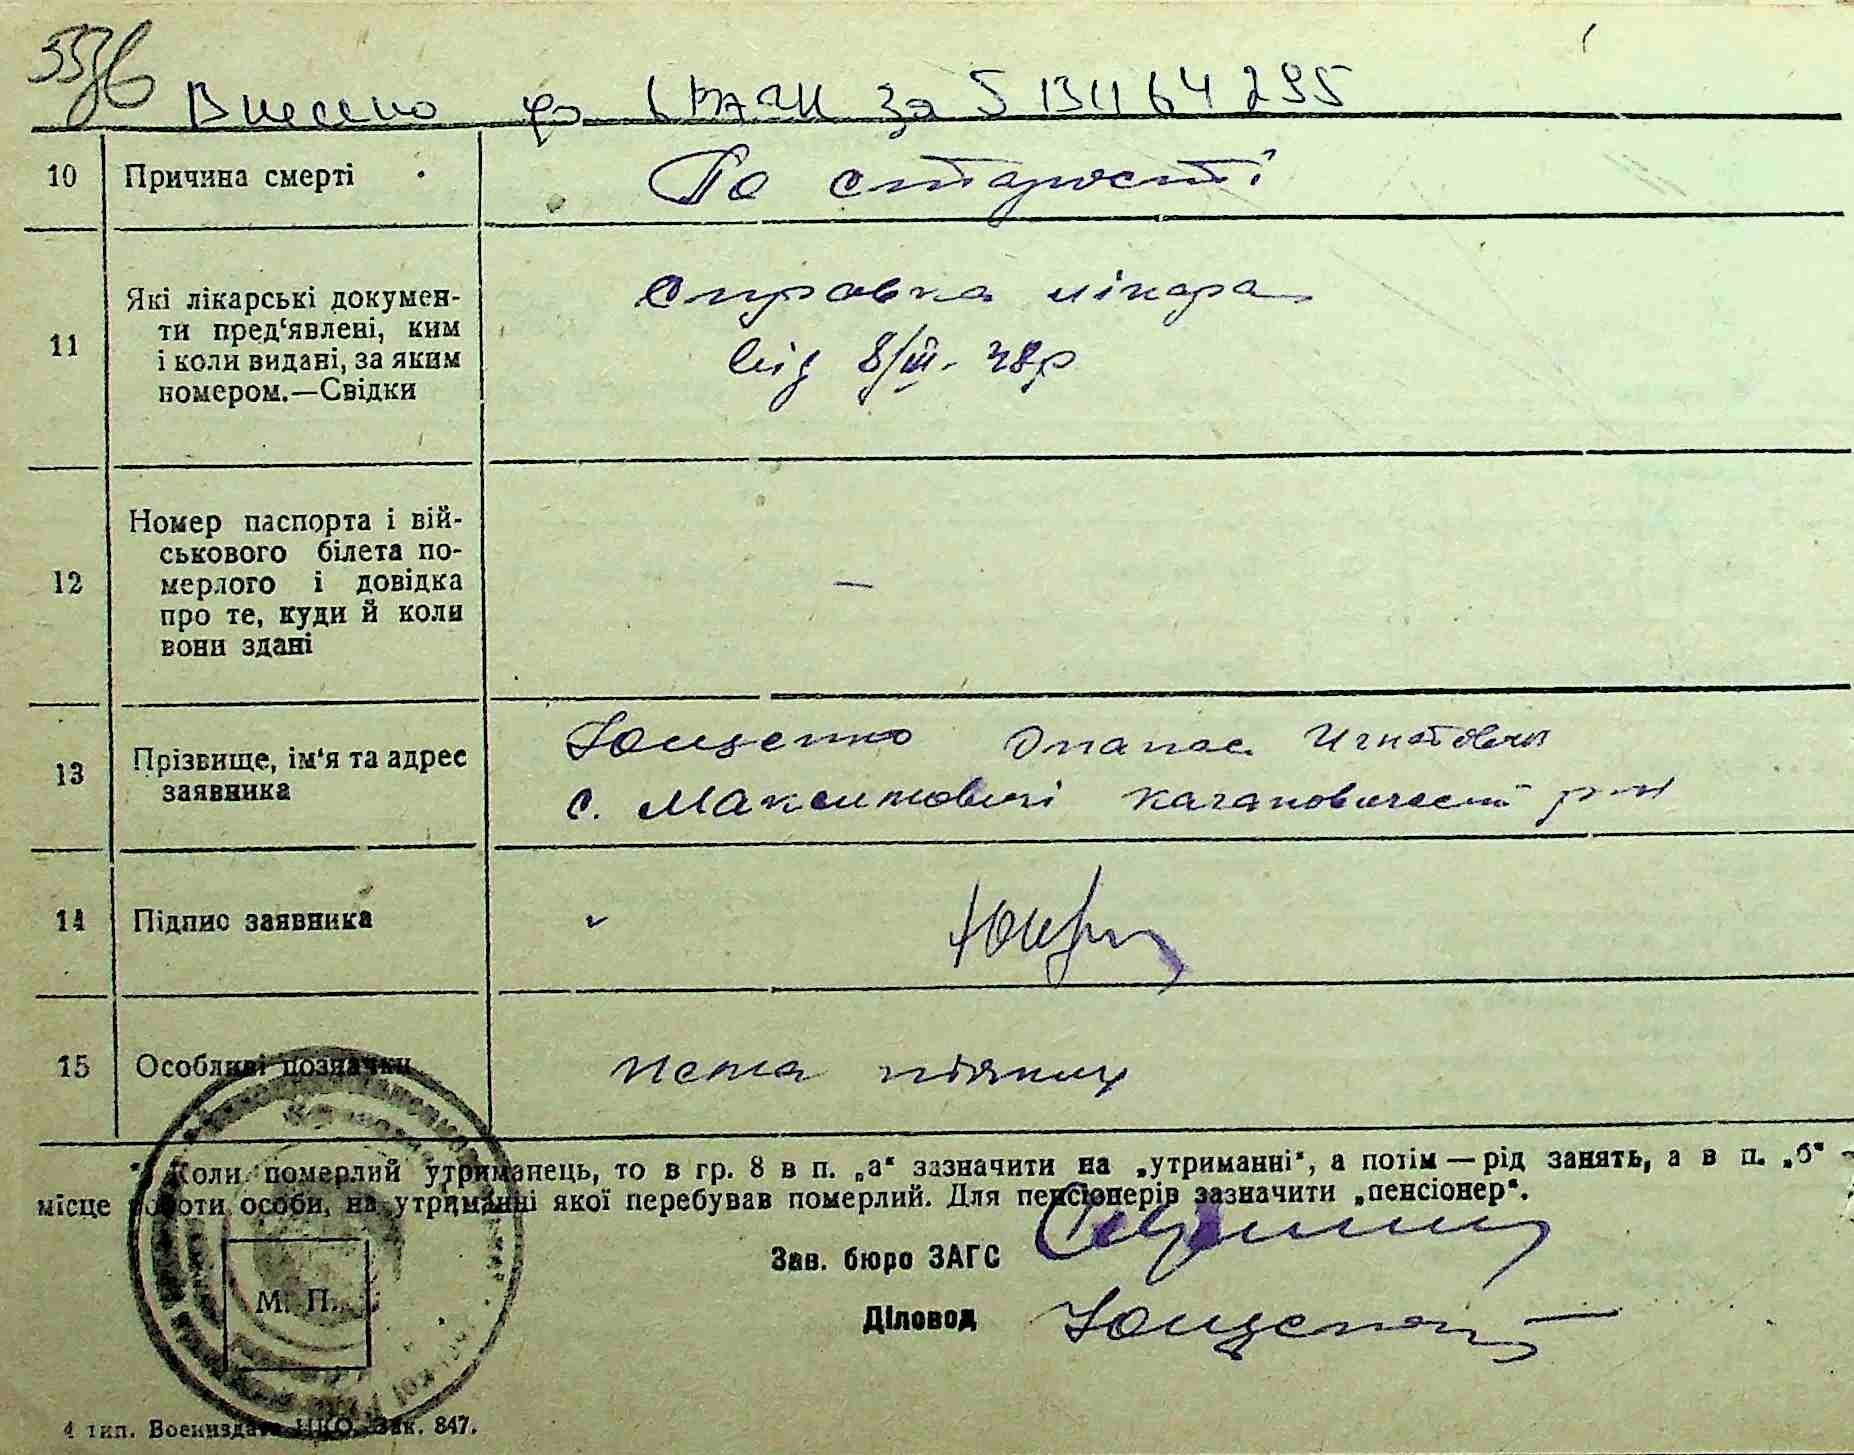 Внесено до ДРАЦС за S 131164295
10 Причина смерті По старості
11 Які лікарські докумен-
ти пред‘явлені, ким
і коли видані, за яким
номером.—Свідки
Справка лікара
від 8/III-48р
12 Номер паспорта і вій-
ськового білета по-
мерлого і довідка
про те, куди й коли
вони здані
—
13 Прізвище, ім‘я та адрес
заявника
Ющенко Опанас Игнатович
с. Максимовичі Кагановический р-н
14 Підпис заявника
15 Особливі позначки нема ніяких
Коли померлий утриманець, то в гр. 8 в п. „а“ зазначити на „утриманні“, а потім — рід занять, а в п. „б“ —
місце роботи особи, на утриманні якої перебував померлий. Для пенсіонерів зазначити „пенсіонер“.
Зав. бюро ЗАГС
М. П.
Діловод Ющенко
4 тип. Воениздата НКО. Зак. 847.